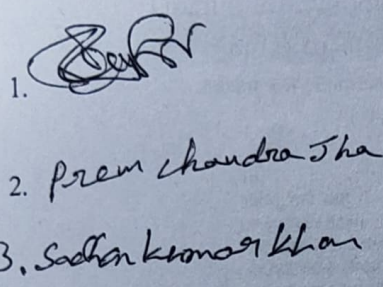 1.
2. Prem Chandra Jha
3. Sadhan kumar khan